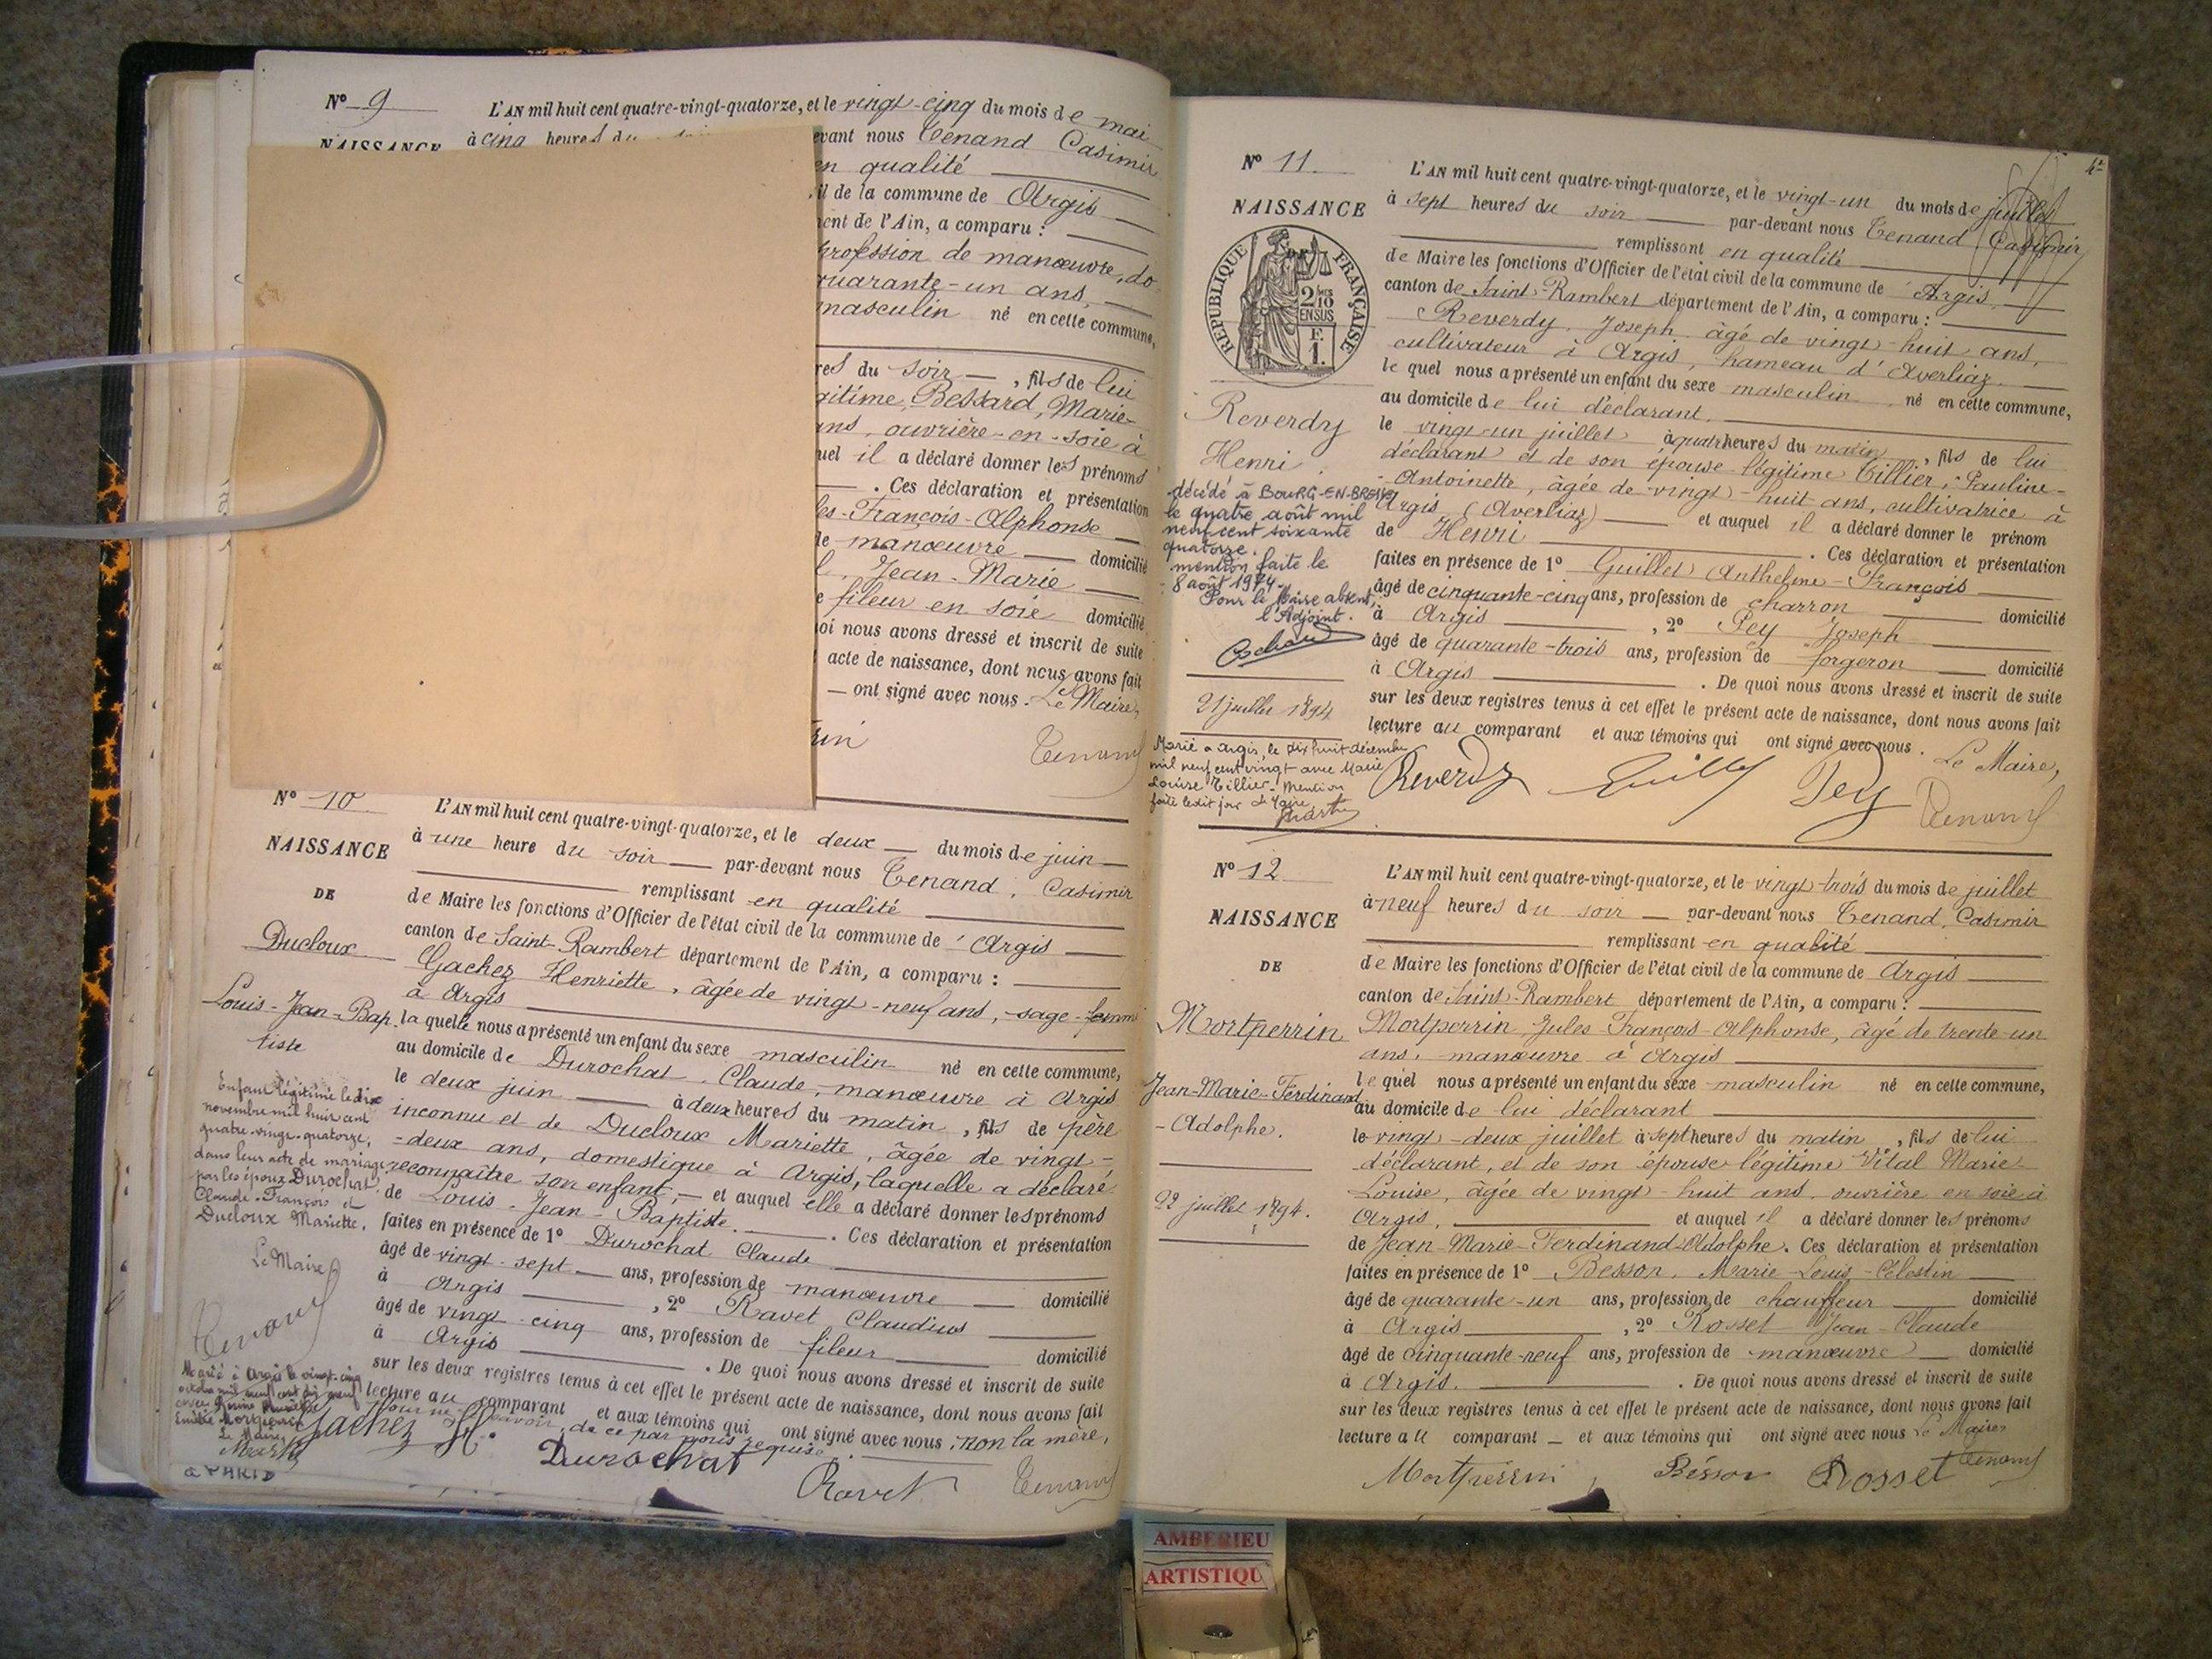 N° 9
L'AN mil huit cent quatre-vingt-quatorze, et le vingt-cinq du mois de mai
NAISSANCE
à cinq heures du
evant nous Tenand Casimir
en qualité
il de la commune de Argis
ment de l'Ain, a comparu :
profession de manœuvre, do
quarante-un ans,
masculin né en cette commune,
res du soir, fils de lui
gitime, Bessard, Marie-
ans, ouvrière-en-soie à
uel il a déclaré donner les prénoms
. Ces déclaration et présentation
les-François-Alphonse
de manœuvre domicilié
l, Jean-Marie
e fileur en soie domicilié
oi nous avons dressé et inscrit de suite
acte de naissance, dont nous avons fait
ont signé avec nous. Le Maire,
rin Tenand
N° 10
NAISSANCE
DE
Ducloux
Louis-Jean-Bap-
tiste
Enfant légitimé le dix
novembre mil huit cent
quatre-vingt-quatorze,
dans leur acte de mariage
par les époux Durochat
Claude-François et
Ducloux Mariette.
Le Maire
Tenand
Marié à Argis le vingt-cinq
octobre mil neuf cent dix neuf
Le Maire
à PARIS
L'AN mil huit cent quatre-vingt-quatorze, et le deux du mois de juin
à une heure du soir par-devant nous Tenand, Casimir
remplissant en qualité
de Maire les fonctions d'Officier de l'état civil de la commune de Argis
canton de Saint-Rambert département de l'Ain, a comparu :
Gachez Henriette, âgée de vingt-neuf ans, sage-femme
à Argis
la quelle nous a présenté un enfant du sexe masculin né en cette commune,
au domicile de Durochat, Claude, manœuvre à Argis
le deux juin à deux heures du matin, fils de père
inconnu et de Ducloux Mariette, âgée de vingt-
-deux ans, domestique à Argis, laquelle a déclaré
reconnaître son enfant, et auquel elle a déclaré donner les prénoms
de Louis-Jean-Baptiste. Ces déclaration et présentation
faites en présence de 1° Durochat Claude
âgé de vingt-sept ans, profession de manœuvre domicilié
à Argis, 2° Ravet Claudius
âgé de vingt-cinq ans, profession de fileur domicilié
à Argis. De quoi nous avons dressé et inscrit de suite
sur les deux registres tenus à cet effet le présent acte de naissance, dont nous avons fait
lecture au comparant et aux témoins qui ont signé avec nous, non la mère,
pour ne savoir, de ce par nous requise.
Gachez H. Durochat Ravet Tenand
4e
N° 11.
NAISSANCE
RÉPUBLIQUE FRANÇAISE
2/10
EN SUS
F.
1.
Reverdy
Henri
décédé à BOURG-EN-BRESSE
le quatre août mil
neuf cent soixante
quatorze.
mention faite le
8 août 1974.
Pour le Maire absent,
l'Adjoint.
21 juillet 1894
Marié à Argis, le dix huit décembre
mil neuf cent vingt avec Marie
Louise Tillier. Mention
faite ledit jour Le Maire
L'AN mil huit cent quatre-vingt-quatorze, et le vingt-un du mois de juillet
à sept heures du soir par-devant nous Tenand Casimir
remplissant en qualité
de Maire les fonctions d'Officier de l'état civil de la commune de Argis
canton de Saint-Rambert département de l'Ain, a comparu :
Reverdy, Joseph, âgé de vingt-huit ans,
cultivateur à Argis, hameau d'Averliaz.
le quel nous a présenté un enfant du sexe masculin né en cette commune,
au domicile de lui déclarant.
le vingt-un juillet à quatr heures du matin, fils de lui
déclarant et de son épouse légitime Tillier, Pauline-
Antoinette, âgée de vingt-huit ans, cultivatrice à
Argis (Averliaz) et auquel il a déclaré donner le prénom
de Henri. Ces déclaration et présentation
faites en présence de 1° Guillet Anthelme-François
âgé de cinquante-cinq ans, profession de charron domicilié
à Argis, 2° Pey Joseph
âgé de quarante-trois ans, profession de forgeron domicilié
à Argis. De quoi nous avons dressé et inscrit de suite
sur les deux registres tenus à cet effet le présent acte de naissance, dont nous avons fait
lecture au comparant et aux témoins qui ont signé avec nous. Le Maire,
Reverdy Guillet Pey Tenand
N° 12
NAISSANCE
DE
Mortperrin
Jean-Marie-Ferdinand
-Adolphe.
22 juillet 1894.
L'AN mil huit cent quatre-vingt-quatorze, et le vingt-trois du mois de juillet
à neuf heures du soir par-devant nous Tenand, Casimir
remplissant en qualité
de Maire les fonctions d'Officier de l'état civil de la commune de Argis
canton de Saint-Rambert département de l'Ain, a comparu :
Mortperrin, Jules-François-Alphonse, âgé de trente-un
ans, manœuvre à Argis
le quel nous a présenté un enfant du sexe masculin né en cette commune,
au domicile de lui déclarant
le vingt-deux juillet à sept heures du matin, fils de lui
déclarant, et de son épouse légitime Vital Marie-
Louise, âgée de vingt-huit ans, ouvrière en soie à
Argis, et auquel il a déclaré donner les prénoms
de Jean-Marie-Ferdinand-Adolphe. Ces déclaration et présentation
faites en présence de 1° Besson, Marie-Louis-Célestin
âgé de quarante-un ans, profession de chauffeur domicilié
à Argis, 2° Rosset Jean-Claude
âgé de cinquante-neuf ans, profession de manœuvre domicilié
à Argis. De quoi nous avons dressé et inscrit de suite
sur les deux registres tenus à cet effet le présent acte de naissance, dont nous avons fait
lecture au comparant et aux témoins qui ont signé avec nous Le Maire
Mortperrin, Bésson Rosset Tenand
AMBERIEU
ARTISTIQU